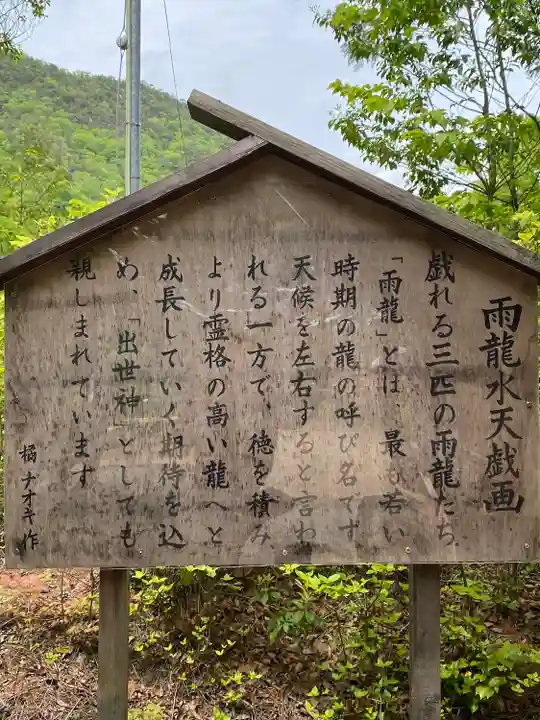 雨龍水天戯画
戯れる三匹の雨龍たち
「雨龍」とは、最も若い
時期の龍の呼び名です
天候を左右すると言わ
れる一方で、徳を積み
より霊格の高い龍へと
成長していく期待を込
め、「出世神」としても
親しまれています
橘ナオキ作